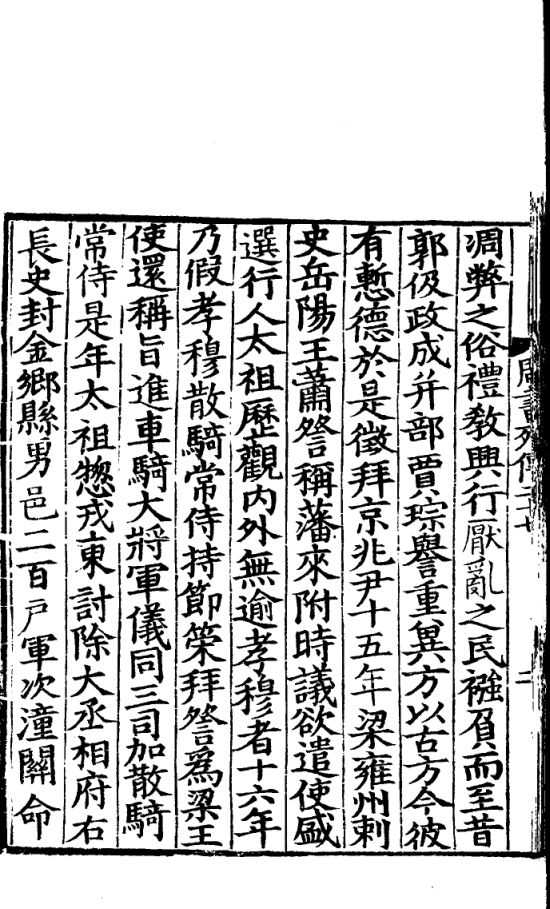 周書列傳二十七
二
凋弊之俗禮敎興行厭亂之民襁負而至昔
郭伋政成幷部賈琮譽重冀方以古方今彼
有慙德於是徵拜京兆尹十五年梁雍州刺
史岳陽王蕭詧稱藩來附時議欲遣使盛
選行人太祖歷觀內外無逾孝穆者十六年
乃假孝穆散騎常侍持節䇿拜詧爲梁王
使還稱旨進車騎大將軍儀同三司加散騎
常侍是年太祖惣戎東討除大丞相府右
長史封金鄉縣男邑二百戶軍次潼關命